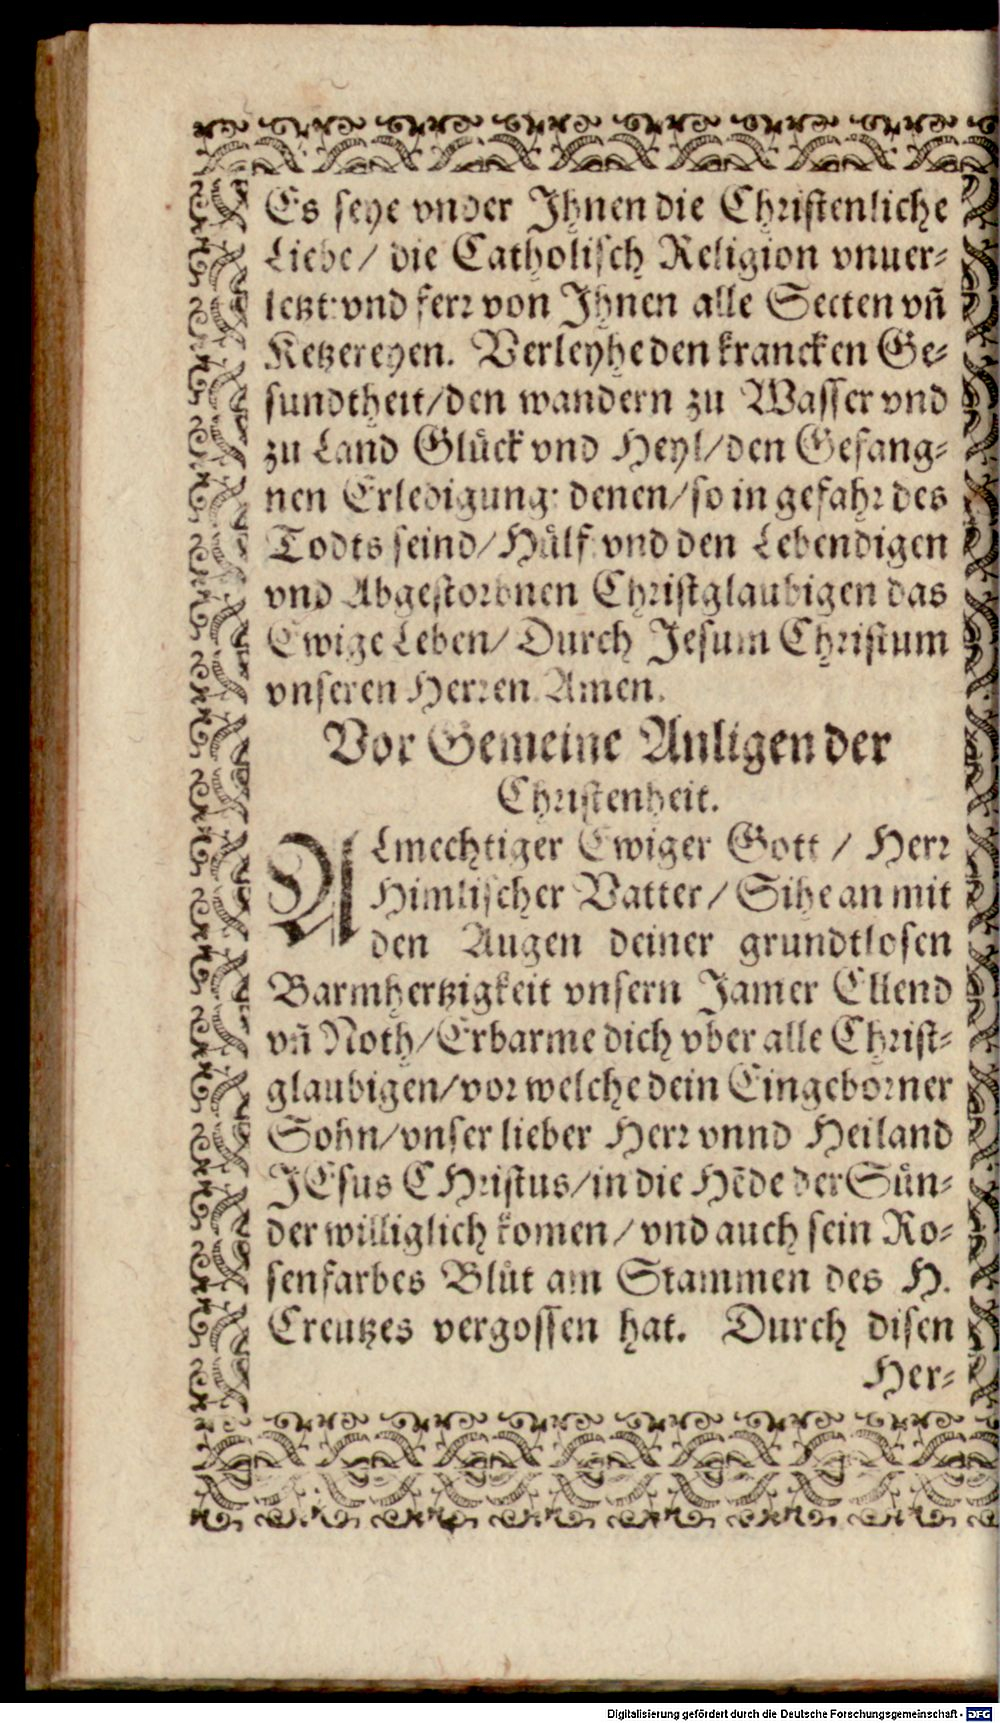 Es seye vnder Ihnen die Christenliche
Liebe/ die Catholisch Religion vnuer-
letzt: vnd ferr von Ihnen alle Secten vn̄
Ketzereyen. Verleyhe den krancken Ge-
sundtheit/den wandern zu Wasser vnd
zu Land Glück vnd Heyl/den Gefang-
nen Erledigung: denen/so in gefahr des
Todts seind/Hülf: vnd den Lebendigen
vnd Abgestorbnen Christglaubigen das
Ewige Leben/ Durch Jesum Christum
vnseren Herren. Amen.
Vor Gemeine Anligen der
Christenheit.
ALmechtiger Ewiger Gott / Herr
Himlischer Vatter/ Sihe an mit
den Augen deiner grundtlosen
Barmhertzigkeit vnsern Jamer Ellend
vn̄ Noth/Erbarme dich vber alle Christ-
glaubigen/vor welche dein Eingeborner
Sohn/vnser lieber Herr vnnd Heiland
JEsus CHristus/in die Hēde der Sün-
der williglich komen/vnd auch sein Ro-
senfarbes Blůt am Stammen des H.
Creutzes vergossen hat. Durch disen
Her-
Digitalisierung gefördert durch die Deutsche Forschungsgemeinschaft - DFG